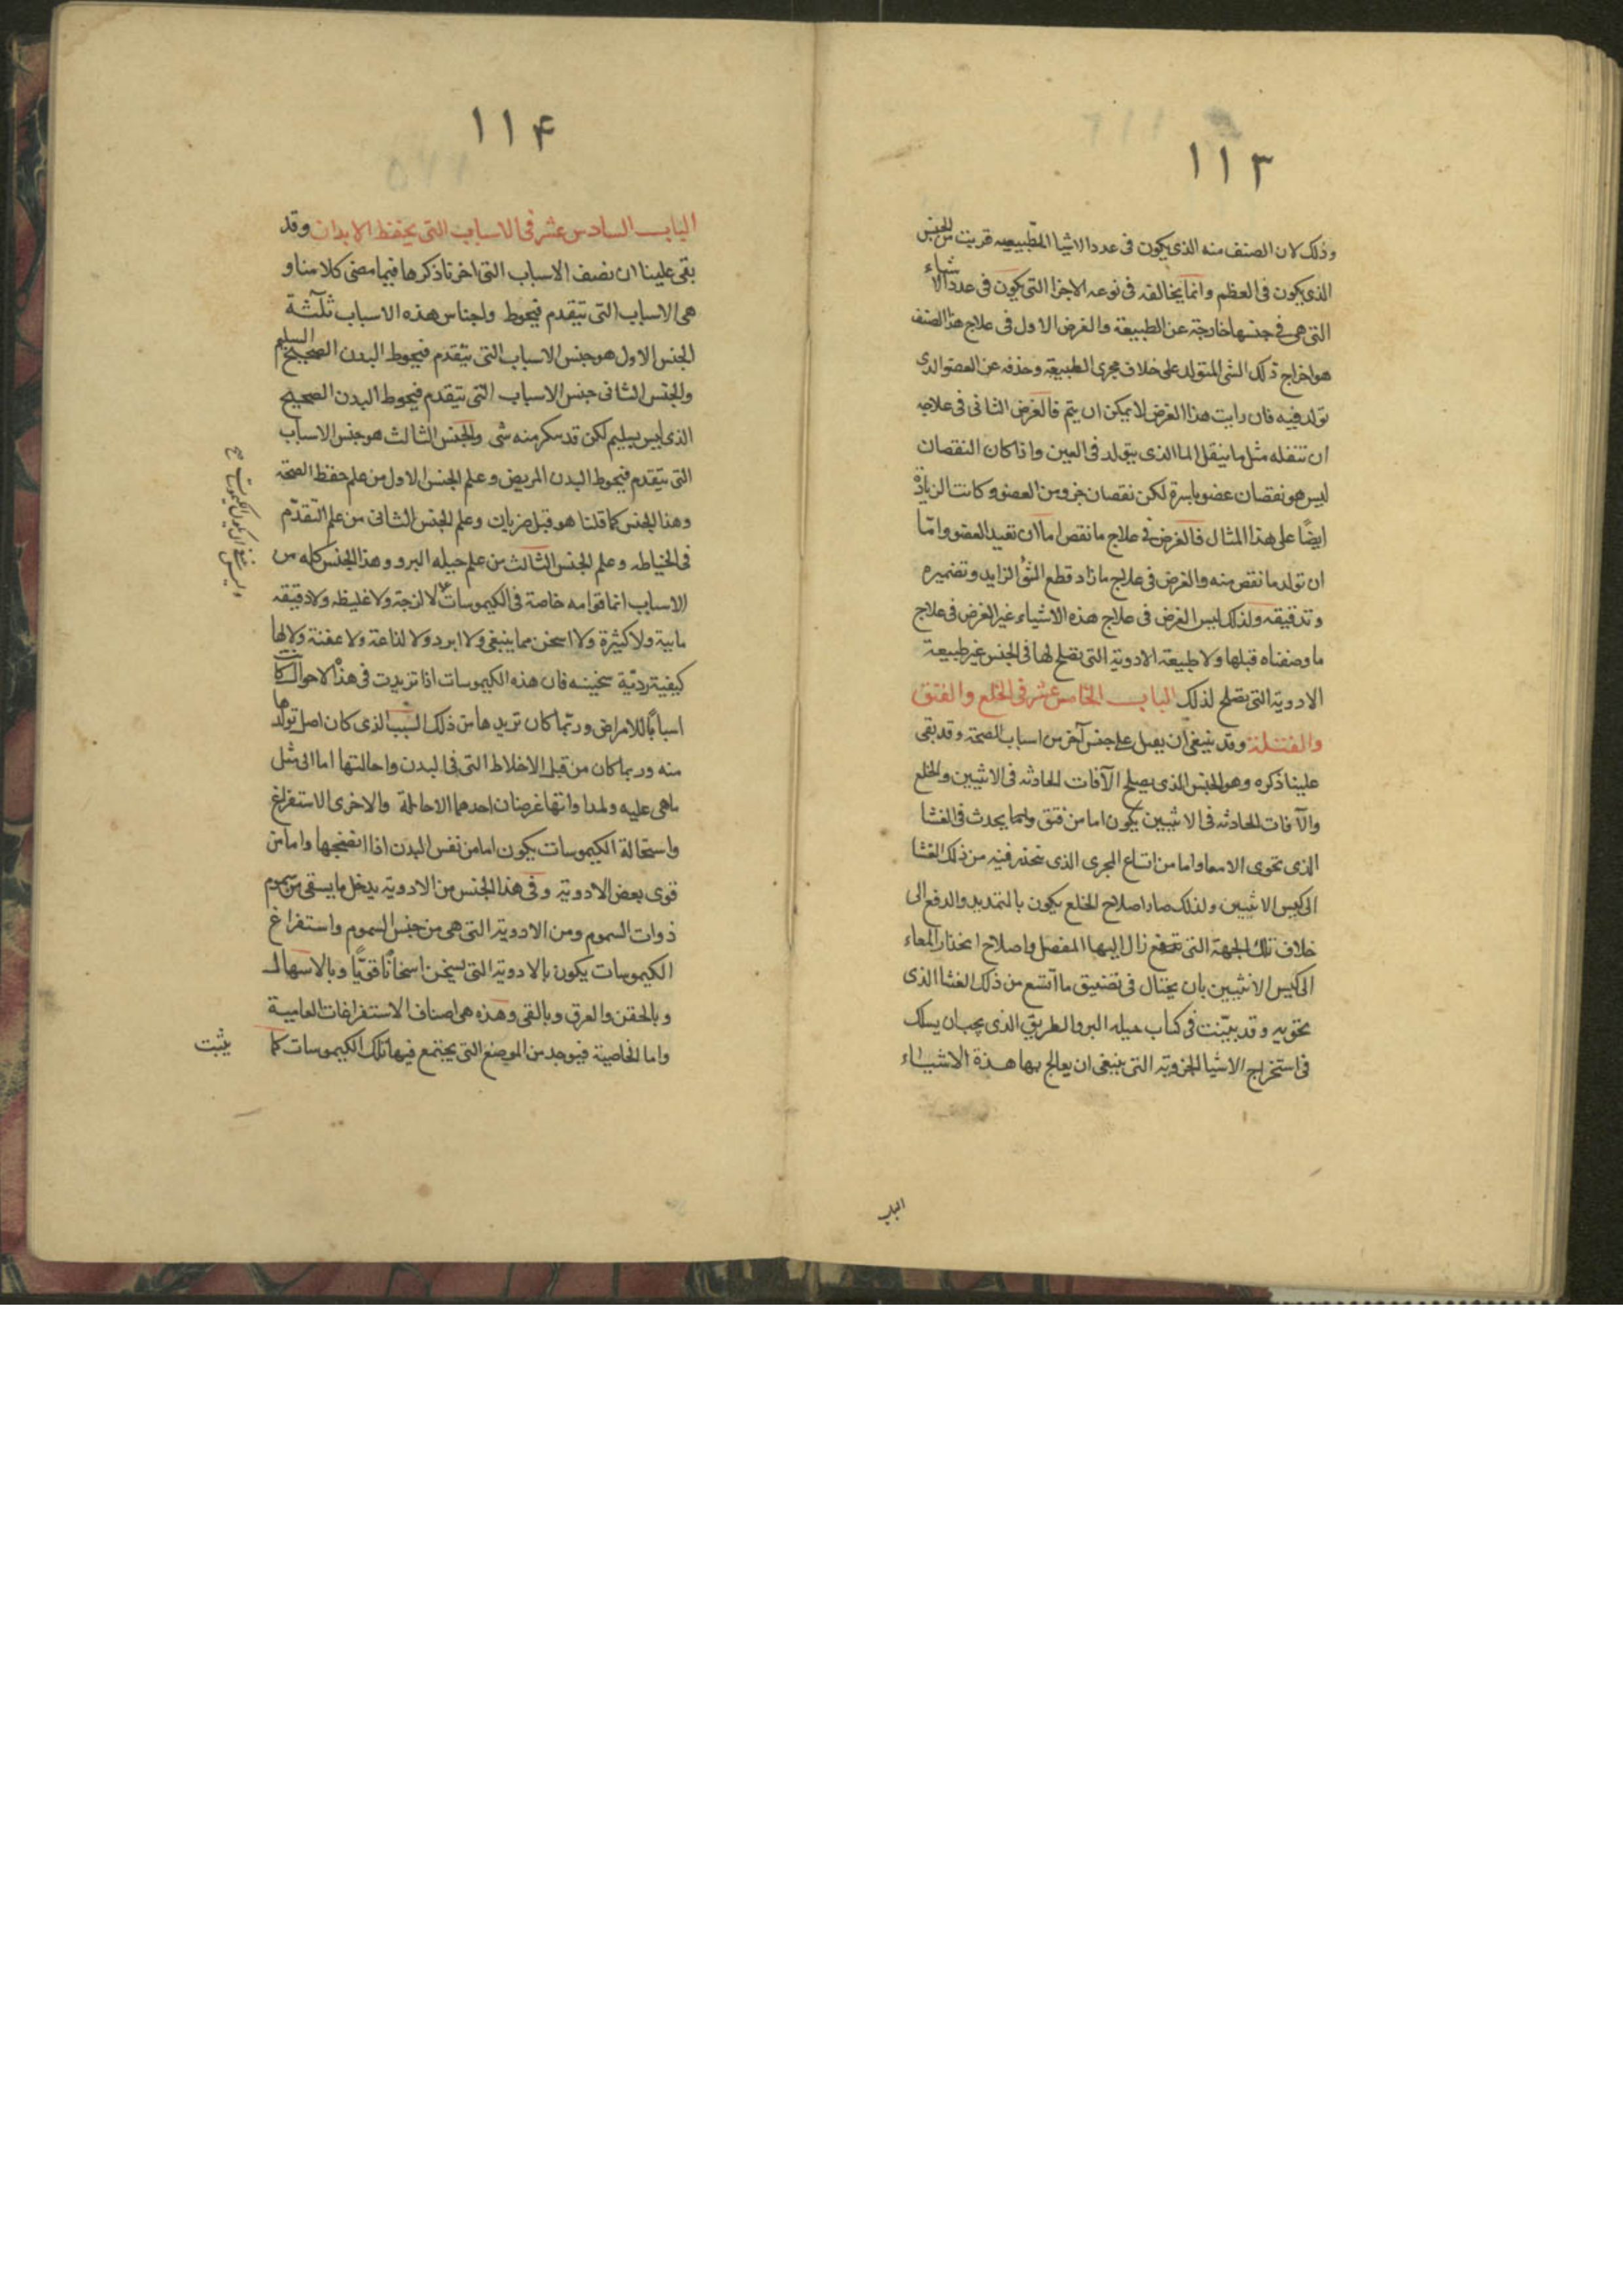 ١١٣
وذلك لان الصنف منه الذى يكون فى عدد الاشيا الطبيعيه قريب من الجنس
الذى يكون فى العظم وانما يخالفه فى نوعه الاجزا التى تكون فى عدد الاشياء
التى هى فى جنسها خارجة عن الطبيعة والغرض الاول فى علاج هذا الصنف
هو اخراج ذلك الشى المتولد على خلاف مجرى الطبيعة وحذفه عن العضو الذى
تولد فيه فان رايت هذا الغرض لا يمكن ان يتم فالغرض الثانى فى علاجه
ان تنقله مثل ما ينقل الما الذى يتولد فى العين واذا كان النقصان
ليس هو نقصان عضو باسره لكن نقصان جزو من العضو وكانت الزيادة
ايضًا على هذا المثال فالغرض فى علاج ما نقص اما ان تعيد العضو وامّا
ان تولد ما نقص منه والغرض فى علاج ما زاد قطع الشئ الزايد وتضميره
وتدقيقه ولذلك ليس الغرض فى علاج هذه الاشياء غير الغرض فى علاج
ما وصفناه قبلها ولا طبيعة الادوية التى تصلح لها فى الجنس غير طبيعة
الادوية التى تصلح لذلك الباب الخامس عشر فى الخلع والفتق
وقد ينبغى ان يقبل على جنس آخر من اسباب الصحة وقد بقى
علينا ذكره وهو الجنس الذى يصلح الآفات الحادثه فى الانثيين والخلع
والآفات الحادثه فى الانثيين يكون اما من فتق وانما يحدث فى الغشا
الذى تحوى الامعا واما من اتساع المجرى الذى ينحدر فيه من ذلك الغشا
الى كيس الانثيين ولذلك صار اصلاح الخلع يكون بالتمديد والدفع الى
خلاف تلك الجهة التى زال اليها المفصل واصلاح انحدار المعاء
الى كيس الانثيين بان يحتال فى تضييق ما اتسع من ذلك الغشا الذى
تحويه وقد بينت فى كتاب حيله البرو الطريق الذى يجب ان يسلك
فى استخراج الاشيا الجزوية التى ينبغى ان يعالج بها هذة الاشياء
الباب
١١۴
الباب السادس عشر فى الاسباب التى يحفظ الابدان وقد
بقى علينا ان نصف الاسباب التى اخرنا ذكرها فيما مضى كلامنا و
هى الاسباب التى تتقدم فيحوط واجناس هذه الاسباب ثلثة
الجنس الاول هو جنس الاسباب التى تتقدم فيحوط البدن الصحيح السليم
والجنس الثانى جنس الاسباب التى تتقدم فيحوط البدن الصحيح
الذى ليس بسليم لكن قد سكر منه شى والجنس الثالث هو جنس الاسباب
التى تتقدم فيحوط البدن المريض وعلم الجنس الاول من علم حفظ الصحة
وهذا الجنس كما قلنا هو قبل ضربان وعلم الجنس الثانى من علم التقدّم
فى الخياطه وعلم الجنس الثالث من علم حيله البرو وهذا الجنس كله من
الاسباب انما قوامه خاصة فى الكيموسات لا لزجة ولا غليظه ولا دقيقه
مايية ولا كثيرة ولا اسخن مما ينبغى ولا ابرد ولا لذاعة ولا عفنة ولا لها
كيفية رديّة سخينه فان هذه الكيموسات اذا تزيدت فى هذا الاحوال كانت
اسبابًا للامراض وربّما كان تزيدها من ذلك السبب الذى كان اصل تولدها
منه وربما كان من قبل الاخلاط التى فى البدن واحالتها اما الى مثل
ماهى عليه ولمداواتها غرضان احدهما الاحالة والاخرى الاستفراغ
واستحالة الكيموسات يكون اما من نفس البدن اذا انضجها واما من
قوى بعض الادوية وفى هذا الجنس من الادوية يدخل ما يسقى من سموم
ذوات السموم ومن الادوية التى هى من جنس السموم واستفراغ
الكيموسات يكون بالادوية التى تسخن اسخانًا قويًّا وبالاسهال
وبالحقن والعرق وبالقى وهذه هى اصناف الاستفراغات العامية
واما الخاصية فيوجد من الموضع التى يجتمع فيها تلك الكيموسات كما
يثبت
وليس ينبغى ان يكون الكيموسات